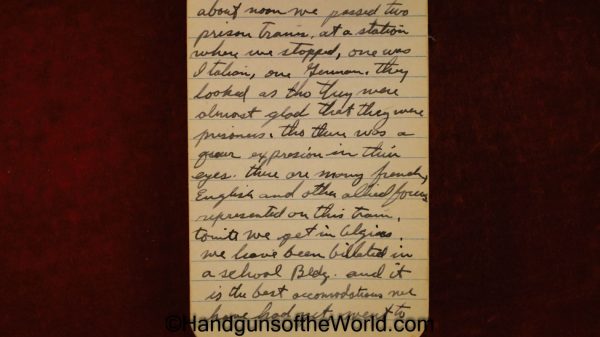 about noon we passed two
prison trains, at a station
where we stopped, one was
Italian, one German. they
looked as tho they were
almost glad that they were
prisoners. tho there was a
queer expresion in their
eyes. there are many french,
English and other allied forces
represented on this train,
tonite we get in Algiers.
we have been billeted in
a school Bldg. and it
is the best accomodations we
have had yet. went to
©HandgunsoftheWorld.com